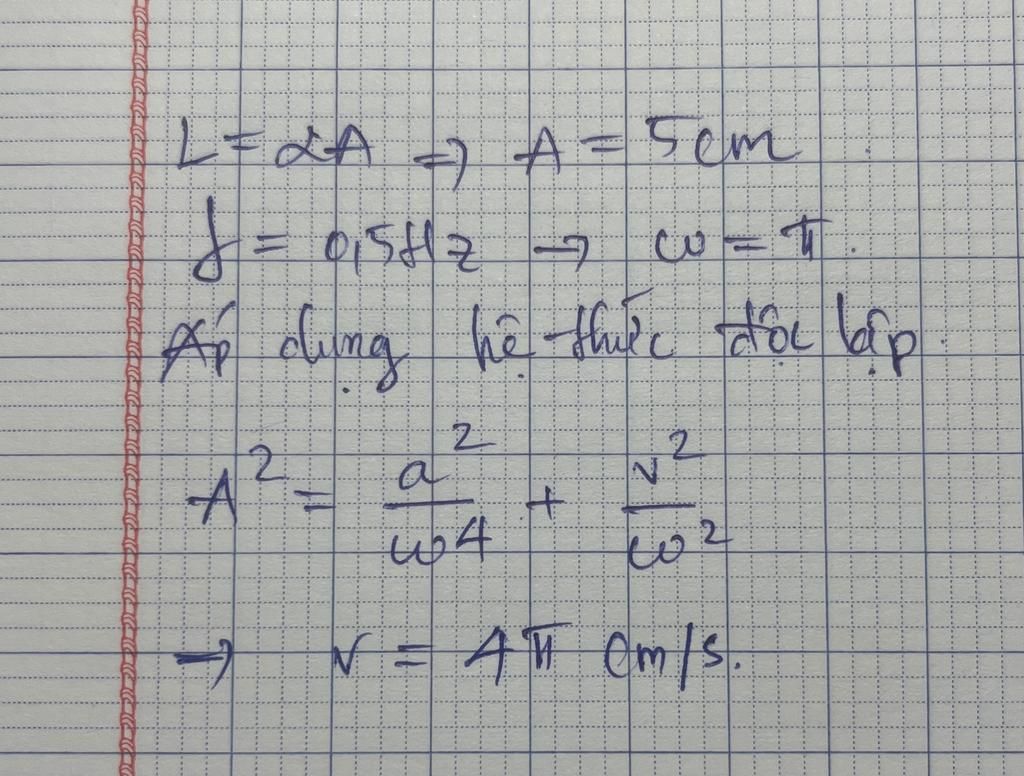 L = 2A => A = 5cm
f = 0,5Hz → ω = π.
Áp dụng hệ thức độc lập
A² = a²/ω⁴ + v²/ω²
→ v = 4π cm/s.